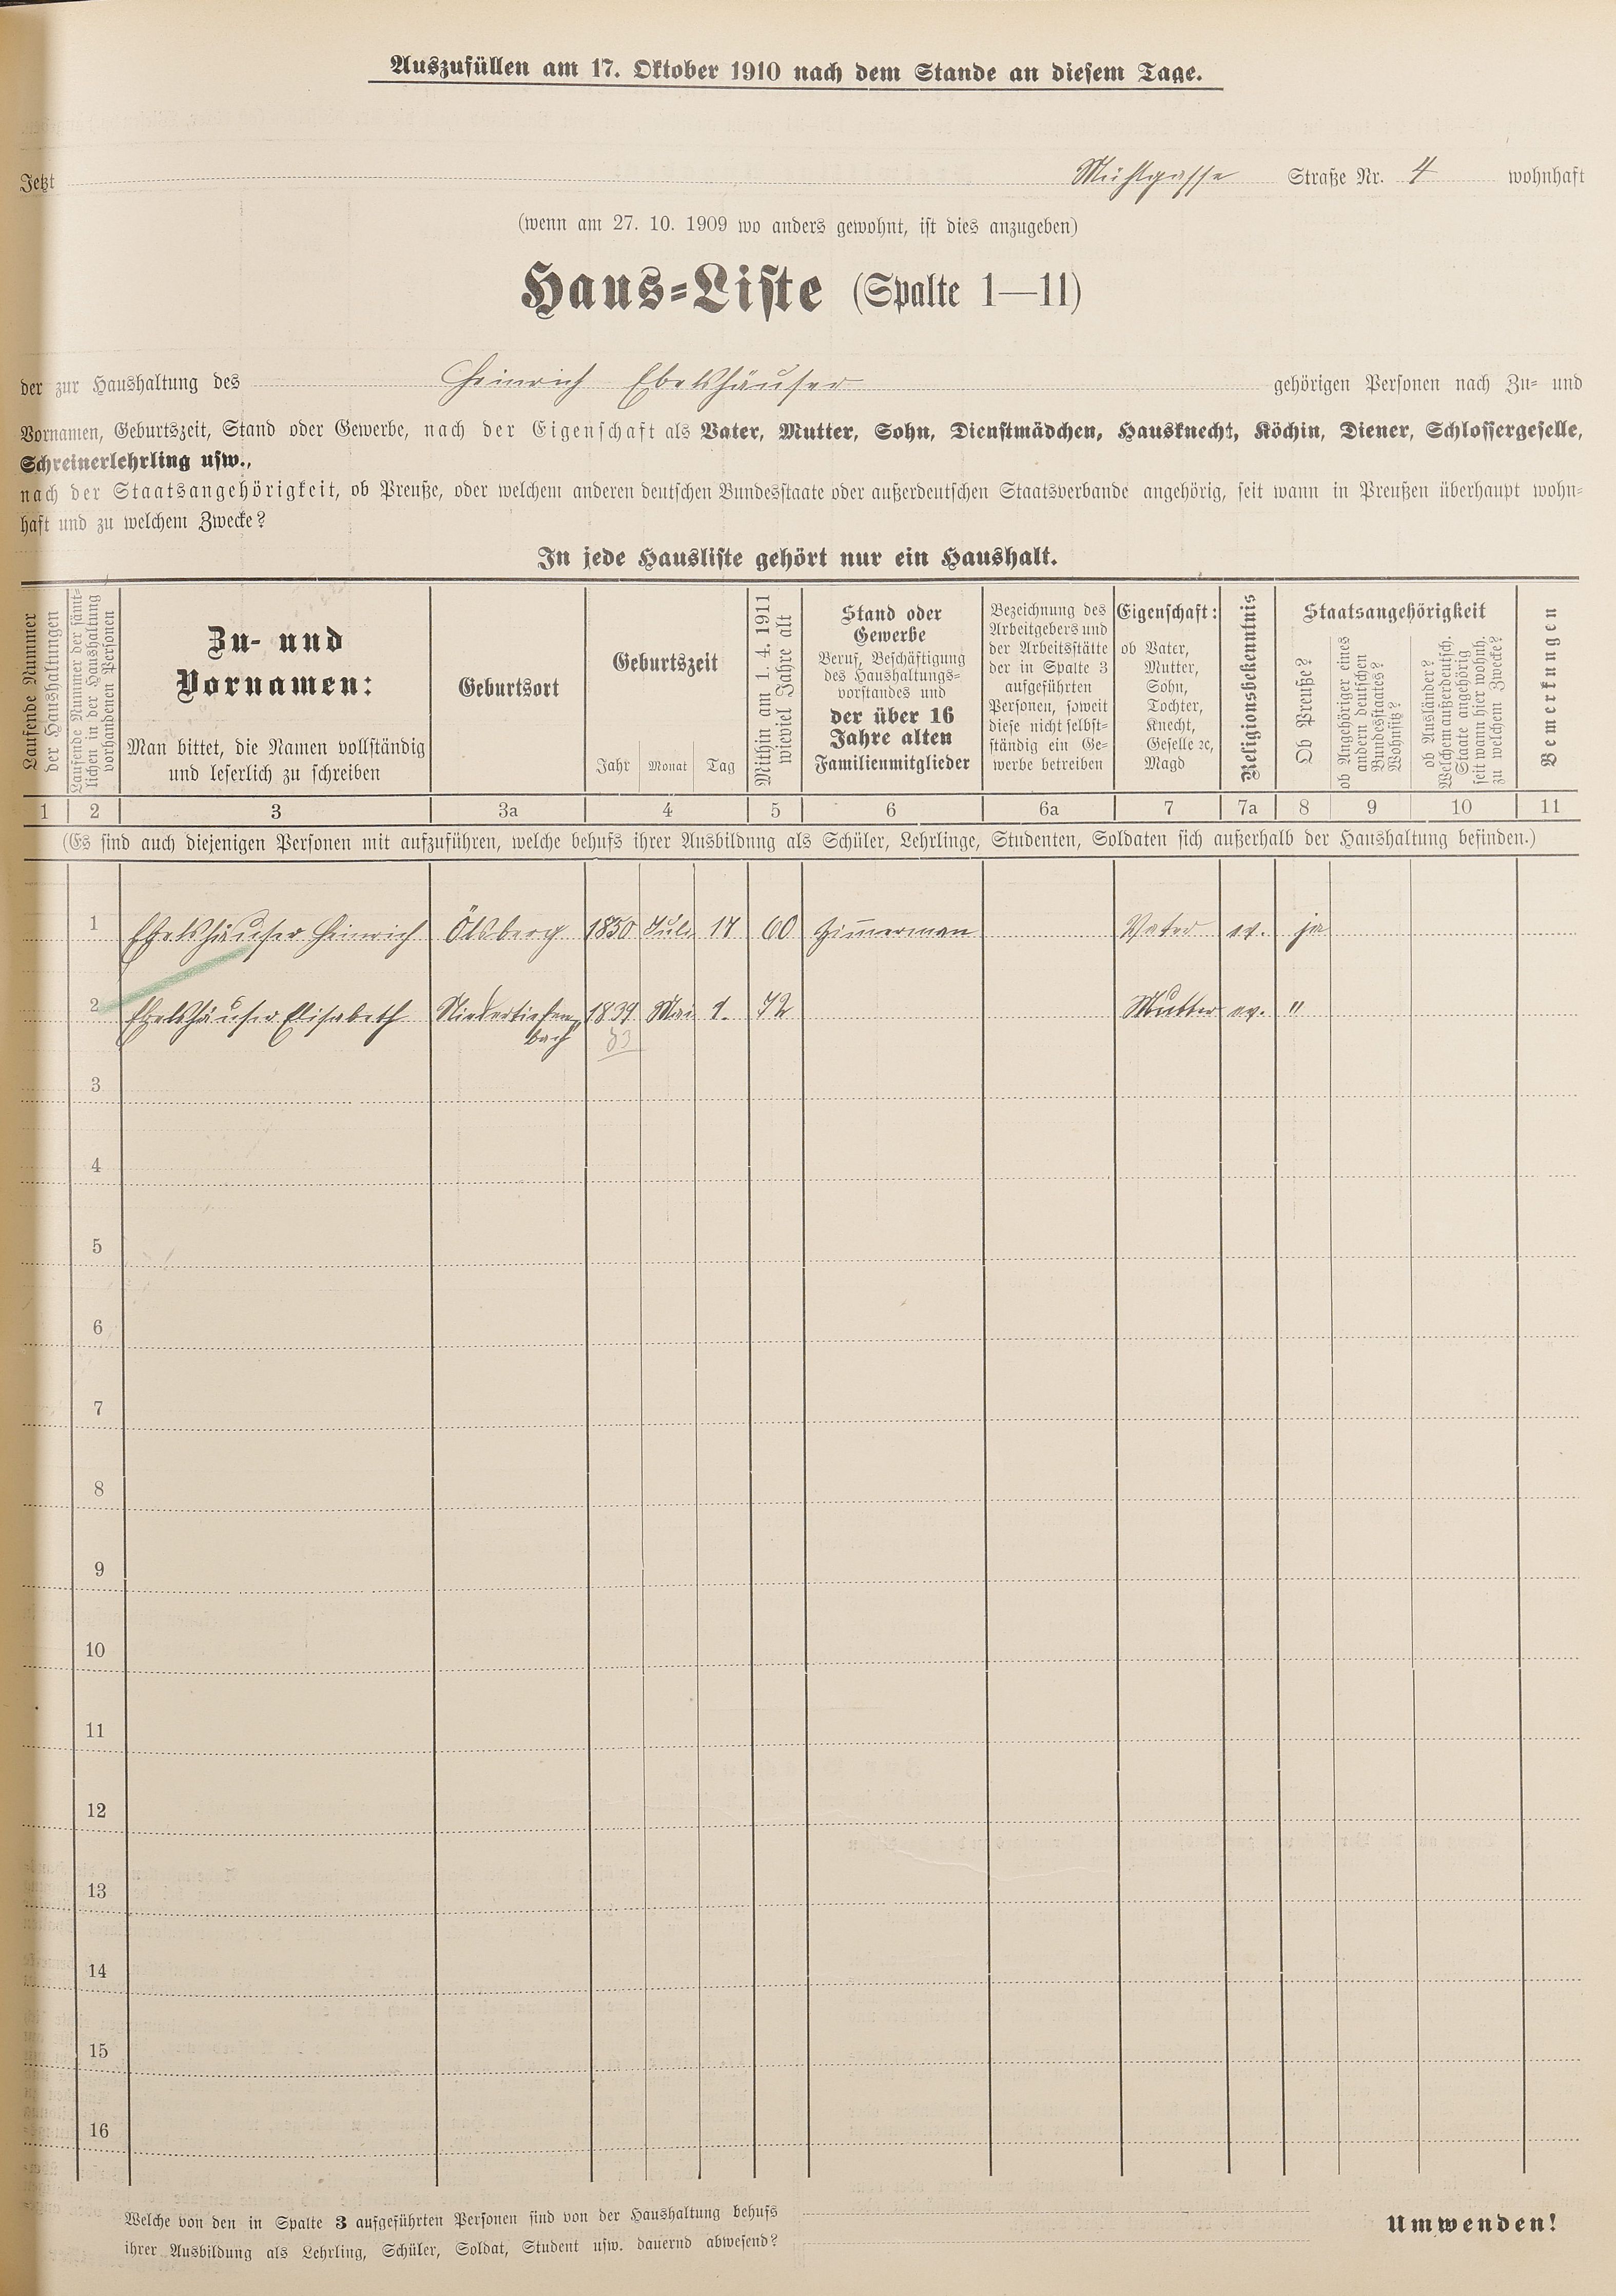 Auszufüllen am 17. Oktober 1910 nach dem Stande an diesem Tage.
Jetzt Mühlgasse Straße Nr. 4 wohnhaft
(wenn am 27. 10. 1909 wo anders gewohnt, ist dies anzugeben)
Haus-Liste (Spalte 1—11)
der zur Haushaltung des Heinrich Ebelshäuser gehörigen Personen nach Zu- und
Vornamen, Geburtszeit, Stand oder Gewerbe, nach der Eigenschaft als Vater, Mutter, Sohn, Dienstmädchen, Hausknecht, Köchin, Diener, Schlossergeselle,
Schreinerlehrling usw.,
nach der Staatsangehörigkeit, ob Preuße, oder welchem anderen deutschen Bundesstaate oder außerdeutschen Staatsverbande angehörig, seit wann in Preußen überhaupt wohn-
haft und zu welchem Zwecke?
In jede Hausliste gehört nur ein Haushalt.
Laufende Nummer
der Haushaltungen
Laufende Nummer der sämt-
lichen in der Haushaltung
vorhandenen Personen
Zu- und
Vornamen:
Man bittet, die Namen vollständig
und leserlich zu schreiben
Geburtsort
Geburtszeit
Jahr Monat Tag
Mithin am 1. 4. 1911
wieviel Jahre alt
Stand oder
Gewerbe
Beruf, Beschäftigung
des Haushaltungs-
vorstandes und
der über 16
Jahre alten
Familienmitglieder
Bezeichnung des
Arbeitgebers und
der Arbeitsstätte
der in Spalte 3
aufgeführten
Personen, soweit
diese nicht selbst-
ständig ein Ge-
werbe betreiben
Eigenschaft:
ob Vater,
Mutter,
Sohn,
Tochter,
Knecht,
Geselle ꝛc,
Magd
Religionsbekenntnis
Staatsangehörigkeit
Ob Preuße?
ob Angehöriger eines
andern deutschen
Bundesstaates?
Wohnsitz?
ob Ausländer?
Welchem außerdeutsch.
Staate angehörig
seit wann hier wohnh.
zu welchem Zwecke?
Bemerkungen
1 2 3 3a 4 5 6 6a 7 7a 8 9 10 11
(Es sind auch diejenigen Personen mit aufzuführen, welche behufs ihrer Ausbildung als Schüler, Lehrlinge, Studenten, Soldaten sich außerhalb der Haushaltung befinden.)
1 Ebelshäuser Heinrich Ölsberg 1850 Juli 17 60 Zim̅erman Vater ev. ja
2 Ebelshäuser Elisabeth Niedertiefen- 1839 Mai 1. 72 Mutter ev. "
bach
3
4
5
6
7
8
9
10
11
12
13
14
15
16
Welche von den in Spalte 3 aufgeführten Personen sind von der Haushaltung behufs
ihrer Ausbildung als Lehrling, Schüler, Soldat, Student usw. dauernd abwesend?
Umwenden!